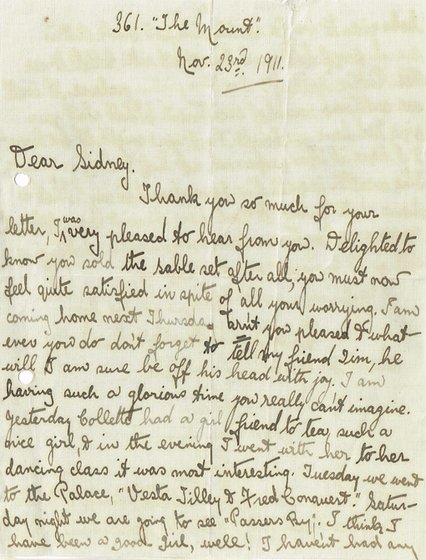 361. "The Mount".
Nov. 23rd. 1911.
Dear Sidney.
Thank you so much for your
letter, I was very pleased to hear from you. Delighted to
know you sold the sable set after all, you must now
feel quite satisfied in spite of all your worrying. I am
coming home next Thursday arn't you pleased & what-
ever you do don't forget to tell my friend Jim, he
will I am sure be off his head with joy. I am
having such a glorious time you really can't imagine.
Yesterday Collette had a girl friend to tea, such a
nice girl, & in the evening I went with her to her
dancing class it was most interesting. Tuesday we went
to the Palace, "Vesta Tilley & Fred Conquest" Satur-
day night we are going to see "Passers By". I think I
have been a good girl, well! I havent had any